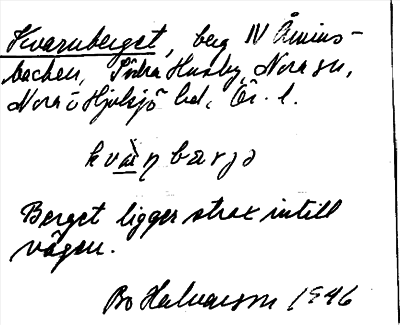 Kvarnberget, berg NV Åmins-
backen, Södra Husby, Nora sn,
Nora o Hjulsjö hd, Ör. l.
Berget ligger strax intill
vägen.
Bo Halvarson 1946